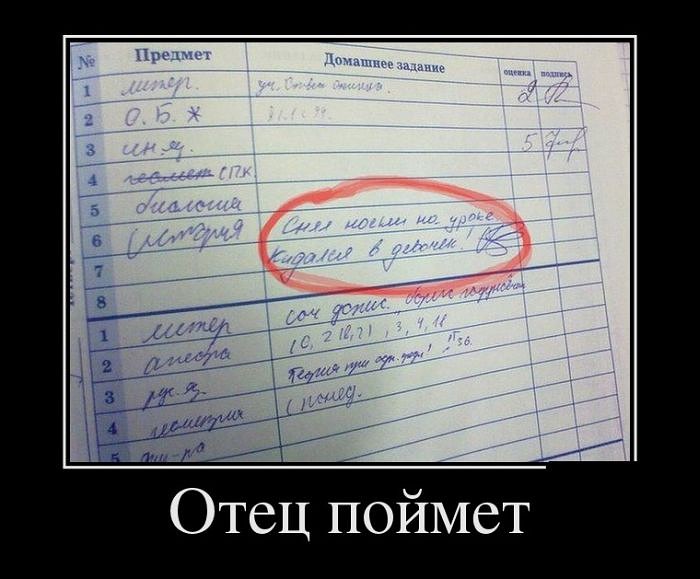 № Предмет Домашнее задание оценка подпись
1 литер. уч. Ответ 2
2 О.Б.Ж
3 ин.яз. 5
4 геомет СПК
5 биология
6 история Снял носки на уроке
7 Кидался в девочек!
8
1 литер соч допис. „Борис Годунов“
2 алгебра
3 рус. яз. Теория при
4 геометрия (понед.
5 физ-ра
Отец поймет